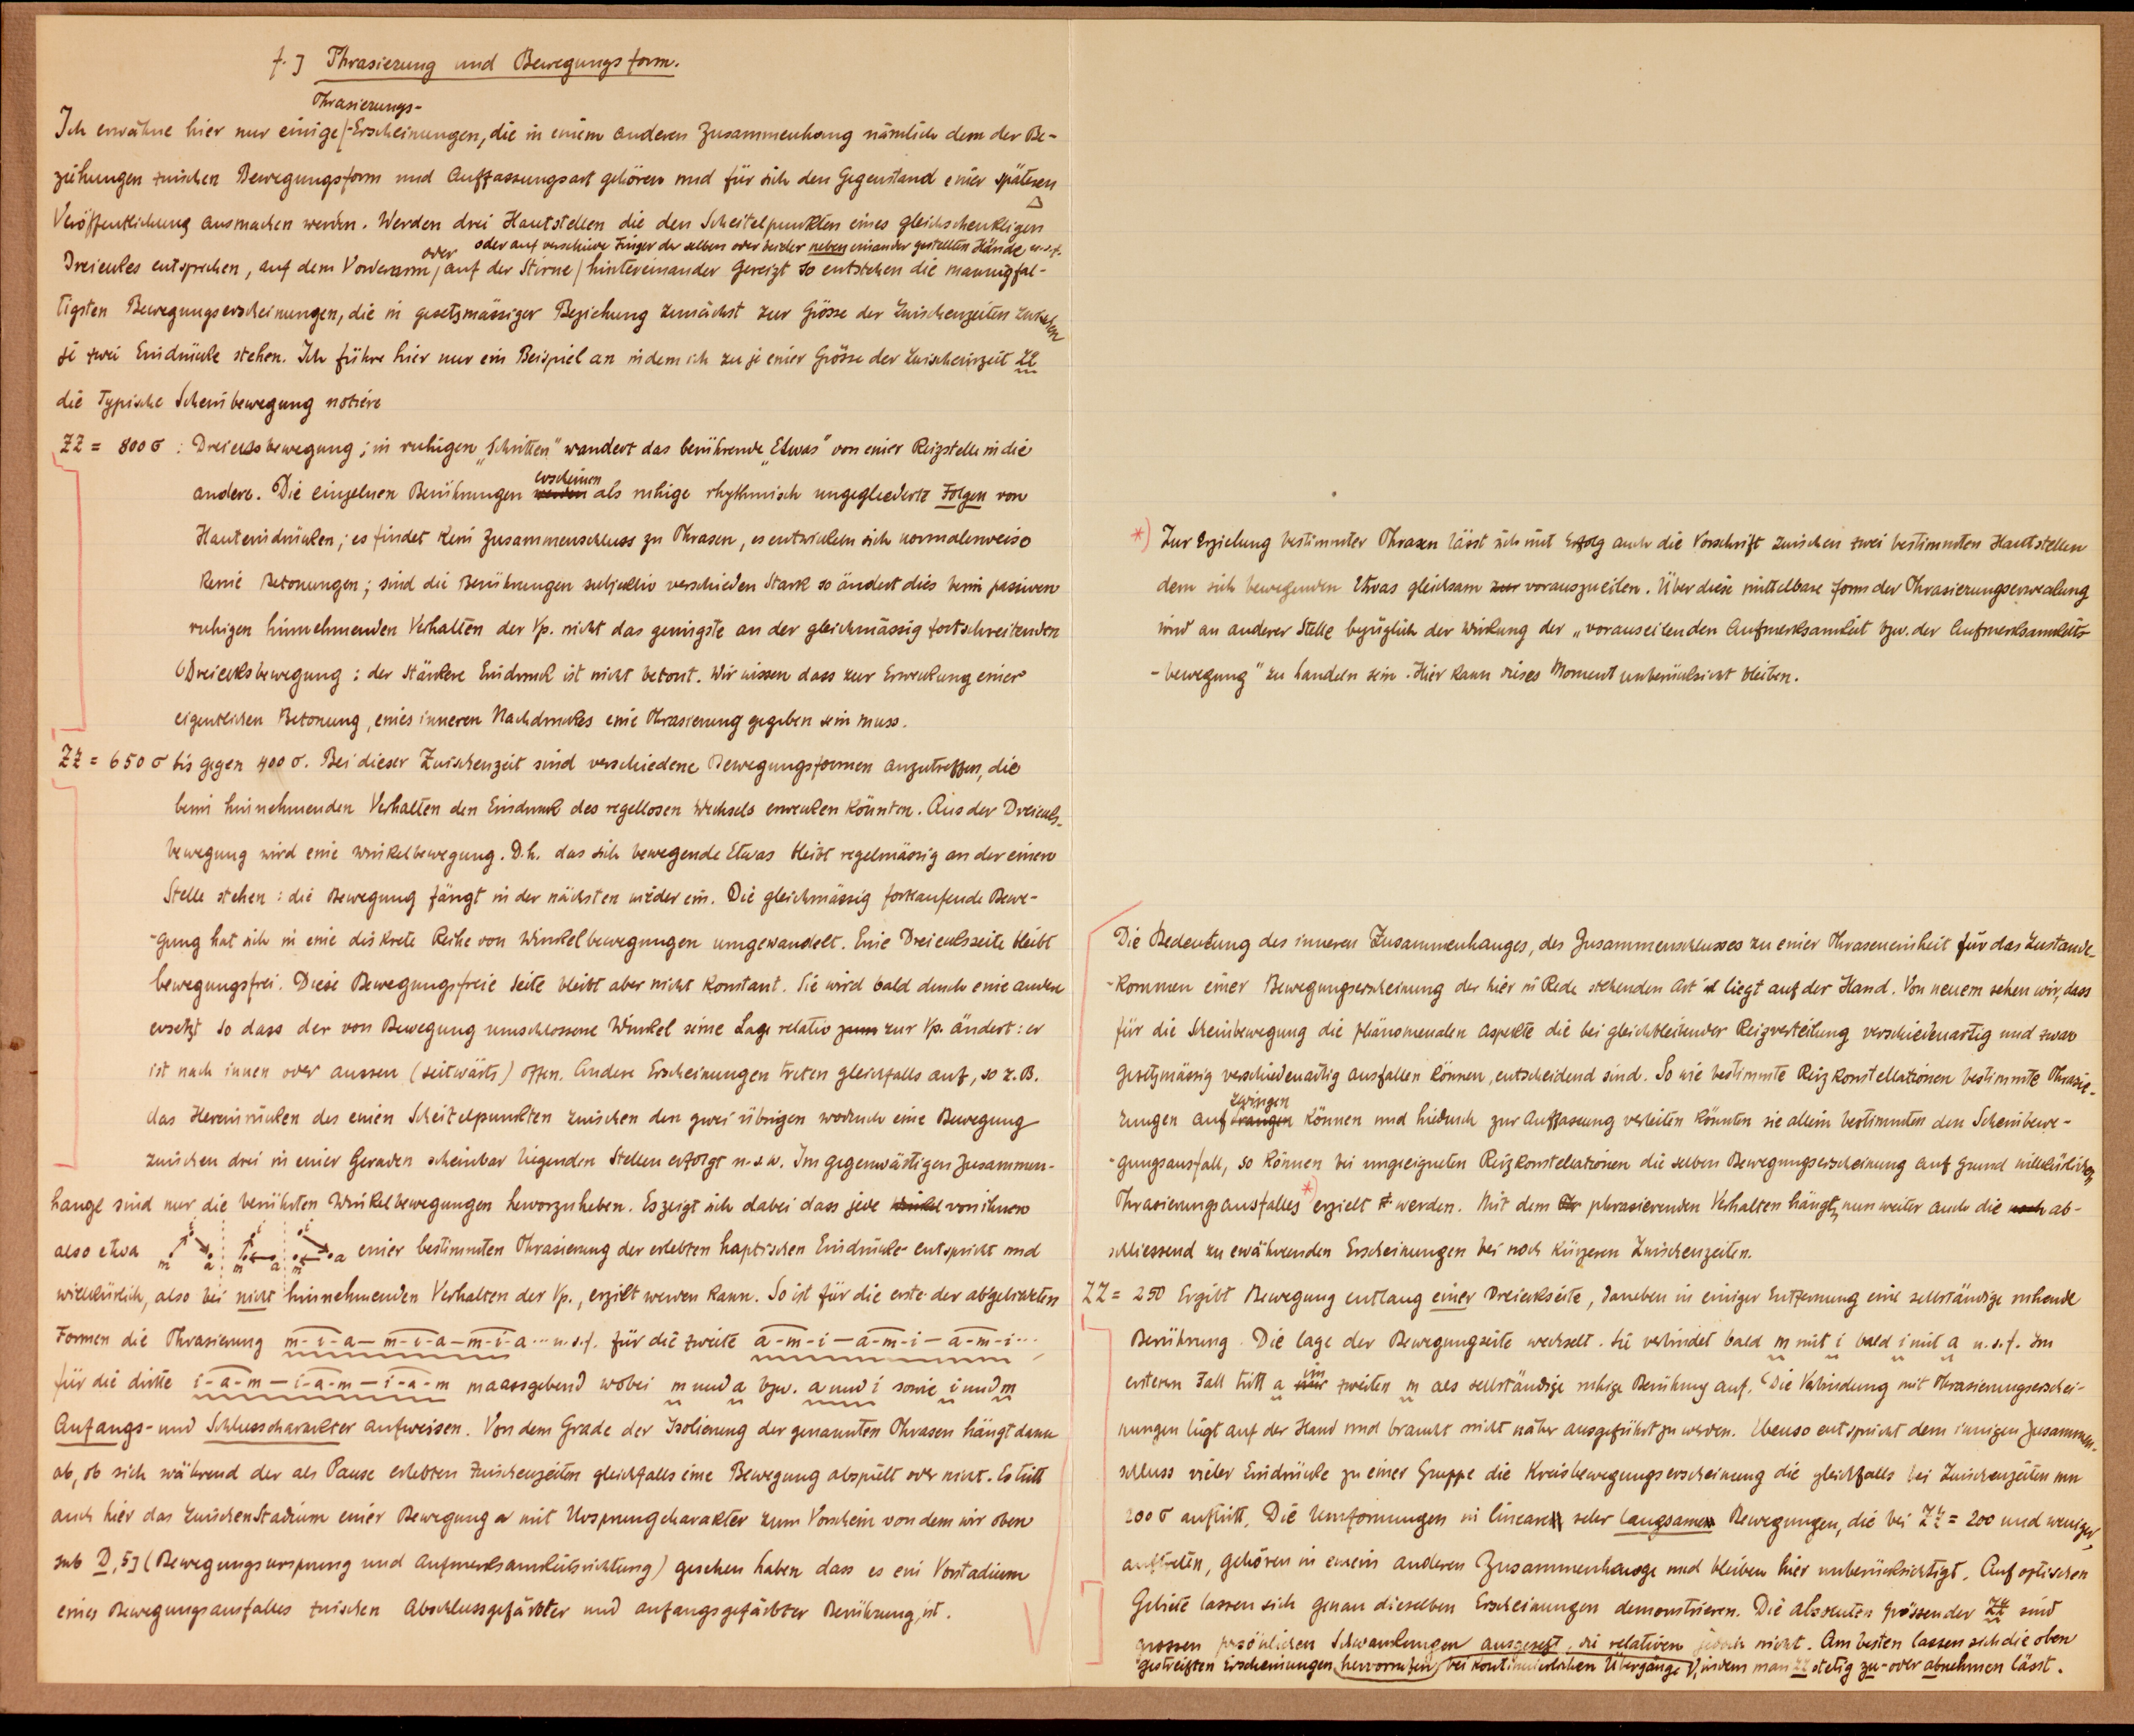 f.] Phrasierung und Bewegungsform.
Phrasierungs-
Ich erwähne hier nur einige/-Erscheinungen, die in einem anderen Zusammenhang nämlich dem der Be-
ziehungen zwischen Bewegungsform und Auffassungsart gehören und für sich den Gegenstand einer späteren
Veröffentlichung ausmachen werden. Werden drei Hautstellen die den Scheitelpunkten eines gleichschenkligen
oder oder auf verschiedene Finger der selben oder beider neben einander gestellten Hände u.s.f.
Dreieckes entsprechen, auf dem Vorderarm, auf der Stirne / hintereinander gereizt so entstehen die mannigfal-
tigsten Bewegungserscheinungen, die in gesetzmässiger Beziehung zunächst zur Grösse der Zwischenzeiten zwischen
je zwei Eindrücke stehen. Ich führe hier nur ein Beispiel an indem ich zu je einer Grösse der Zwischenzeit ZZ
die typische Scheinbewegung notiere
ZZ = 800 σ : Dreiecksbewegung; in ruhigen „Schritten" wandert das berührende „Etwas" von einer Reizstelle in die
erscheinen
andere. Die einzelnen Berührungen werden als ruhige rhythmisch ungegliederte Folgen von
Hauteindrücken; es findet kein Zusammenschluss zu Phrasen, es entwickeln sich normalerweise
keine Betonungen; sind die Berührungen subjektiv verschieden stark so ändert dies beim passiven
ruhigen hinnehmenden Verhalten der Vp. nicht das geringste an der gleichmässig fortschreitenden
Dreiecksbewegung : der stärkere Eindruck ist nicht betont. Wir wissen dass zur Erweckung einer
eigentlichen Betonung, eines inneren Nachdruckes eine Phrasierung gegeben sein muss.
ZZ = 650 σ bis gegen 400 σ. Bei dieser Zwischenzeit sind verschiedene Bewegungsformen anzutreffen, die
beim hinnehmenden Verhalten den Eindruck des regellosen Wechsels erwecken könnten. Aus der Dreiecks-
bewegung wird eine Winkelbewegung. D.h. das sich bewegende Etwas bleibt regelmässig an der einen
Stelle stehen : die Bewegung fängt in der nächsten wieder ein. Die gleichmässig fortlaufende Bewe-
-gung hat sich in eine diskrete Reihe von Winkelbewegungen umgewandelt. Eine Dreiecksseite bleibt
bewegungsfrei. Diese Bewegungsfreie Seite bleibt aber nicht konstant. Sie wird bald durch eine andere
ersetzt so dass der von Bewegung umschlossene Winkel seine Lage relativ zum zur Vp. ändert : er
ist nach innen oder aussen (seitwärts) offen. Andere Erscheinungen treten gleichfalls auf, so z.B.
das Hereinrücken des einen Scheitelpunkten zwischen den zwei übrigen wodurch eine Bewegung
zwischen drei in einer Geraden scheinbar liegenden Stellen erfolgt u.s.w. Im gegenwärtigen Zusammen-
hange sind nur die berührten Winkelbewegungen hervorzuheben. Es zeigt sich dabei dass jede Winkel von ihnen
i i i
also etwa m a m a m a einer bestimmten Phrasierung der erlebten haptischen Eindrücke entspricht und
willkürlich, also bei nicht hinnehmenden Verhalten der Vp., erzielt werden kann. So ist für die erste der abgeleiteten
Formen die Phrasierung m-i-a—m-i-a—m-i-a... u.s.f. für die zweite a-m-i—a-m-i—a-m-i...,
für die dritte i-a-m—i-a-m—i-a-m maassgebend wobei m und a bzw. a und i sowie i und m
Anfangs- und Schlusscharakter aufweisen. Von dem Grade der Isolierung der genannten Phrasen hängt dann
ab, ob sich während der als Pause erlebten Zwischenzeiten gleichfalls eine Bewegung abspielt oder nicht. Es tritt
auch hier das Zwischenstadium einer Bewegung mit Ursprungcharakter zum Vorschein von dem wir oben
sub D, 5] (Bewegungsursprung und Aufmerksamkeitsrichtung) gesehen haben dass es ein Vorstadium
eines Bewegungsausfalles zwischen abschlussgefärbter und anfangsgefärbter Berührung ist.
*) Zur Erzielung bestimmter Phrasen lässt sich mit Erfolg auch die Vorschrift zwischen zwei bestimmten Hautstellen
dem sich bewegenden Etwas gleichsam zur vorauszueilen. Über diese mittelbare Form der Phrasierungserweckung
wird an anderer Stelle bezüglich der Wirkung der „vorauseilenden Aufmerksamkeit bzw. der Aufmerksamkeits-
-bewegung" zu handeln sein. Hier kann dieses Moment unberücksicht bleiben.
Die Bedeutung des inneren Zusammenhanges, des Zusammenschlusses zu einer Phraseneinheit für das Zustande-
-kommen einer Bewegungserscheinung der hier in Rede stehenden Art liegt auf der Hand. Von neuem sehen wir, dass
für die Scheinbewegung die phänomenalen Aspekte die bei gleichbleibender Reizverteilung verschiedenartig und zwar
gesetzmässig verschiedenartig ausfallen können, entscheidend sind. So wie bestimmte Reizkonstellationen bestimmte Phrasie-
zwingen
rungen aufdrängen können und hiedurch zur Auffassung verleiten könnten sie allein bestimmten den Scheinbewe-
-gungsausfall, so können bei ungeeigneten Reizkonstellationen die selben Bewegungserscheinung auf Grund willkürlichen
Phrasierungsausfalles *) erzielt werden. Mit dem phrasierenden Verhalten hängt nun weiter auch die noch ab-
schliessend zu erwähnenden Erscheinungen bei noch kürzeren Zwischenzeiten.
ZZ = 250 Ergibt Bewegung entlang einer Dreieckseite, daneben in einiger Entfernung eine selbständige ruhende
Berührung. Die Lage der Bewegungseite wechselt. Sie verbindet bald m mit i bald i mit a u.s.f. Im
im
ersteren Fall tritt a zweiten m als selbständige ruhige Berührung auf. Die Verbindung mit Phrasierungserschei-
nungen liegt auf der Hand und braucht nicht näher ausgeführt zu werden. Ebenso entspricht dem innigen Zusammen-
schluss vieler Eindrücke zu einer Gruppe die Kreisbewegungserscheinung die gleichfalls bei Zwischenzeiten um
200 σ auftritt. Die Umformungen in lineare sehr langsame Bewegungen, die bei ZZ = 200 und weniger,
auftreten, gehören in einem anderen Zusammenhange und bleiben hier unberücksichtigt. Auf optischen
Gebiete lassen sich genau dieselben Erscheinungen demonstrieren. Die absoluten Grössen der ZZ sind
grossen persönlichen Schwankungen ausgesetzt, die relativen jedoch nicht. Am besten lassen sich die oben
gestreiften Erscheinungen hervorrufen bei kontinuierlichen Übergänge, indem man ZZ stetig zu- oder abnehmen lässt.